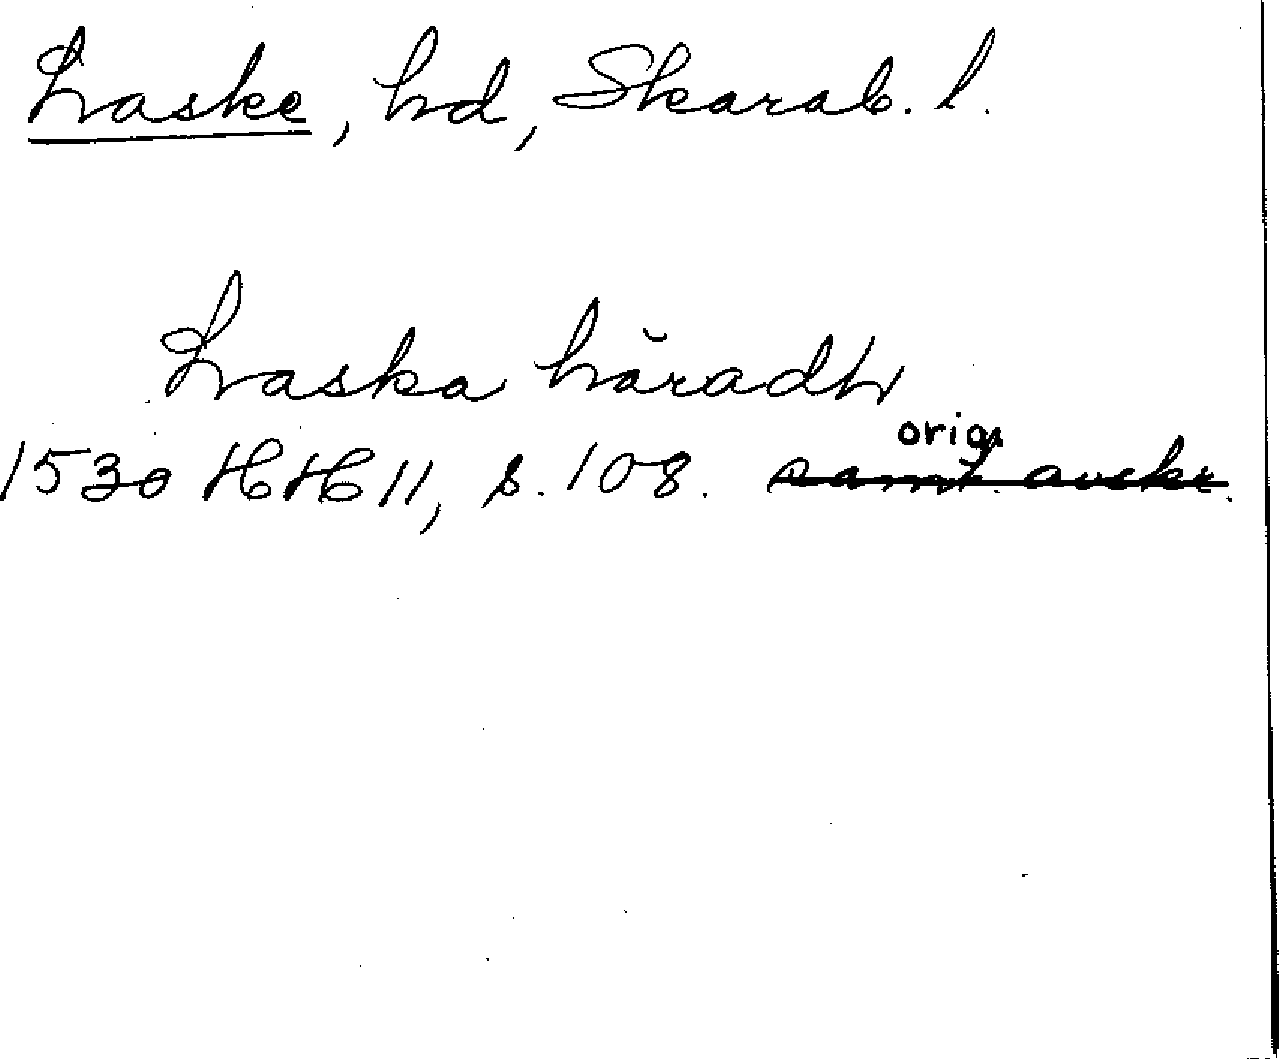 Laske, hd, Skarab. l.
Laska häradh
orig.
1530 HH 11, s. 108. samt. avskr.